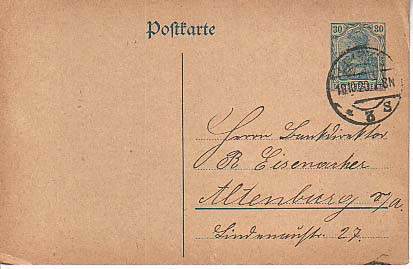 Postkarte
30 30
18.10.20. 7-8N
* ö S
Herrn Bankdirektor
R Eisenacher
Altenburg S/A.
Lindenaustr. 27.